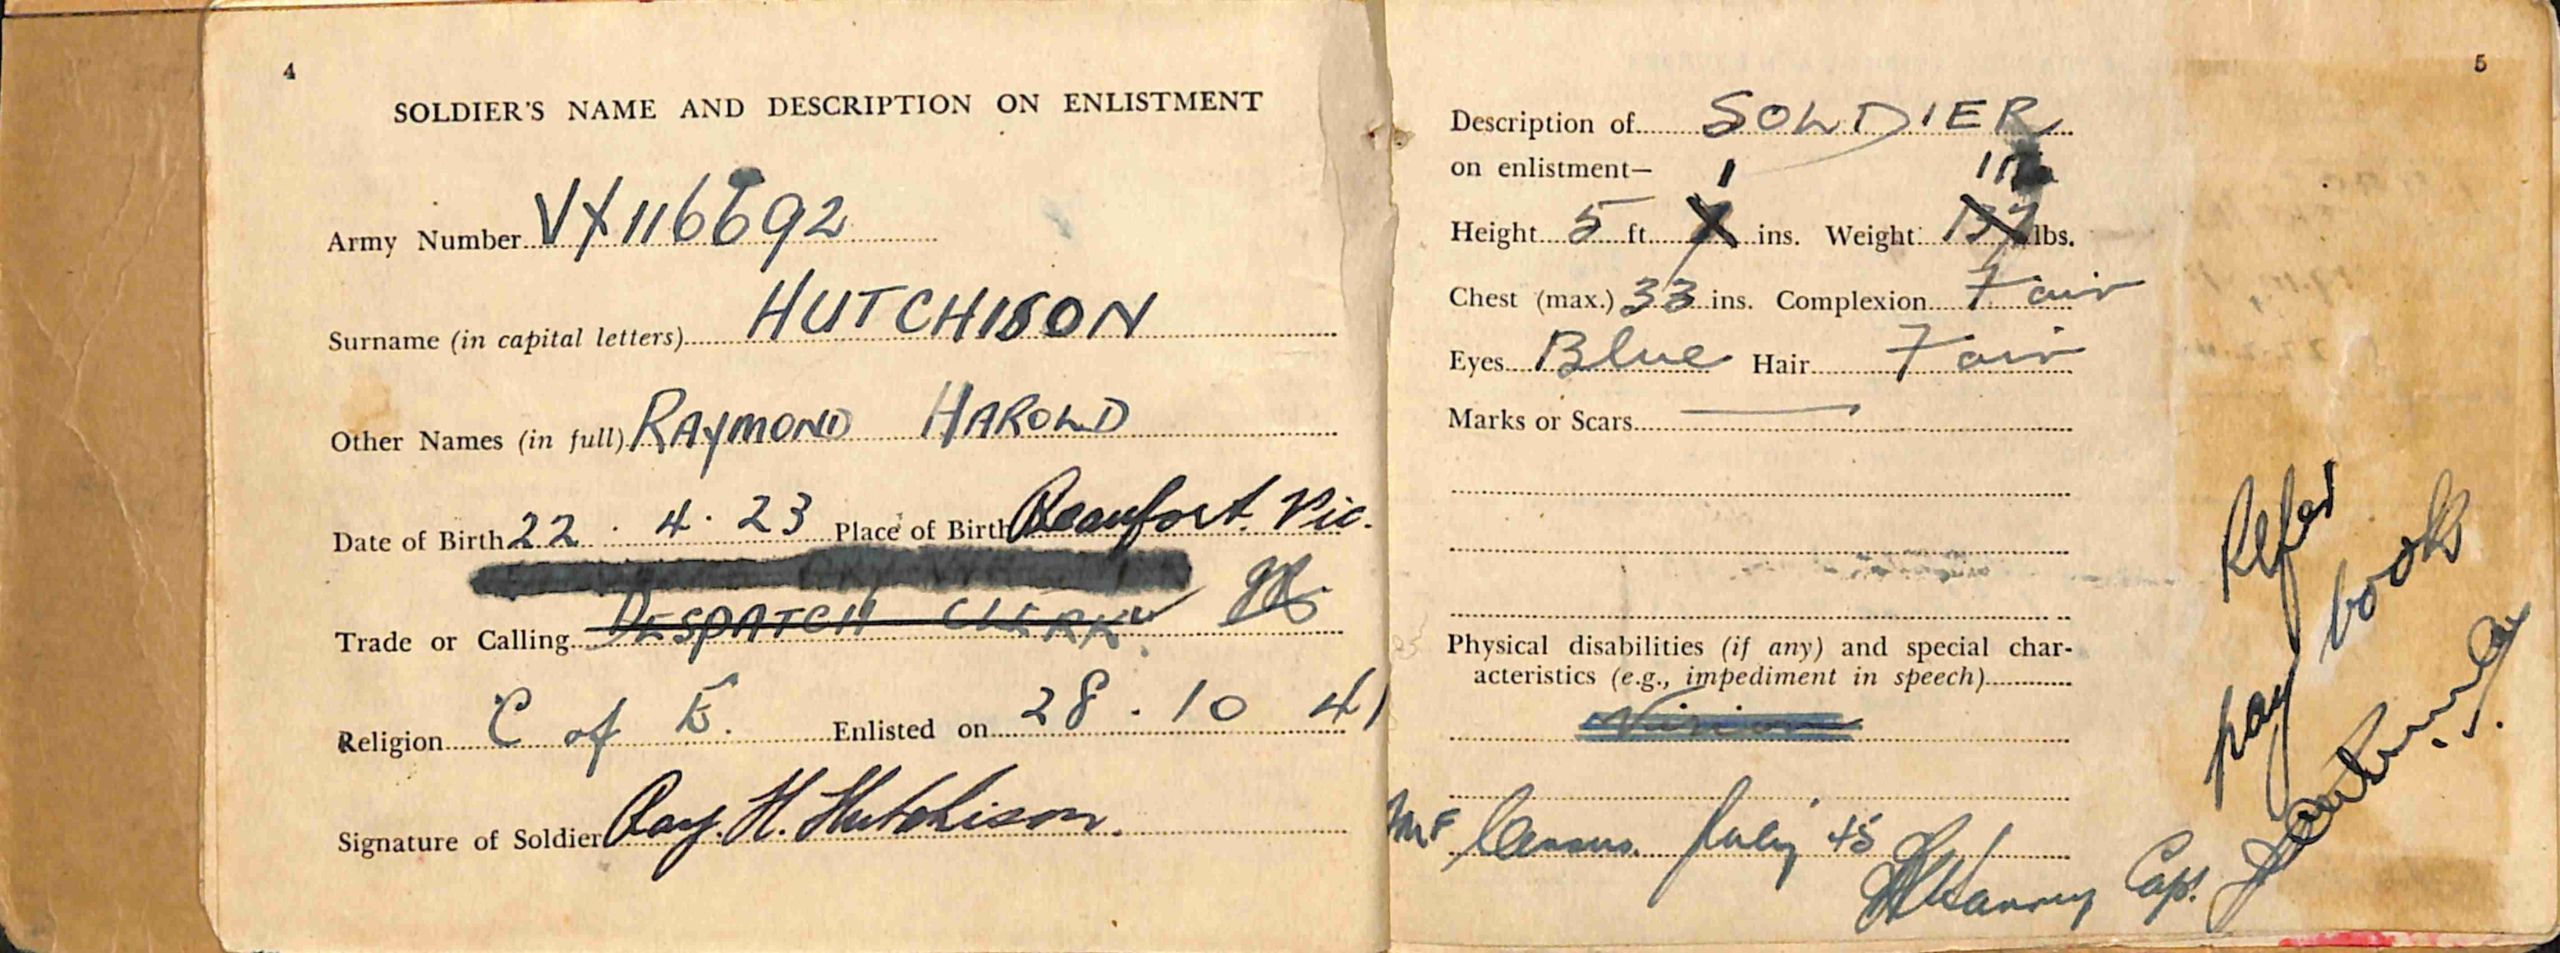 4
SOLDIER'S NAME AND DESCRIPTION ON ENLISTMENT
Army Number VX116692
Surname (in capital letters) HUTCHISON
Other Names (in full) RAYMOND HAROLD
Date of Birth 22 . 4 . 23 Place of Birth Beaufort. Vic.
Trade or Calling DESPATCH CLERK
Religion C of E. Enlisted on 28 . 10 41
Signature of Soldier Ray. H. Hutchison.
5
Description of SOLDIER
on enlistment— 1
Height 5 ft. ins. Weight 137 lbs.
Chest (max.) 33 ins. Complexion Fair
Eyes Blue Hair Fair
Marks or Scars
Physical disabilities (if any) and special char-
acteristics (e.g., impediment in speech)
Vision
Census. July 45
Capt.
Refer
pay book